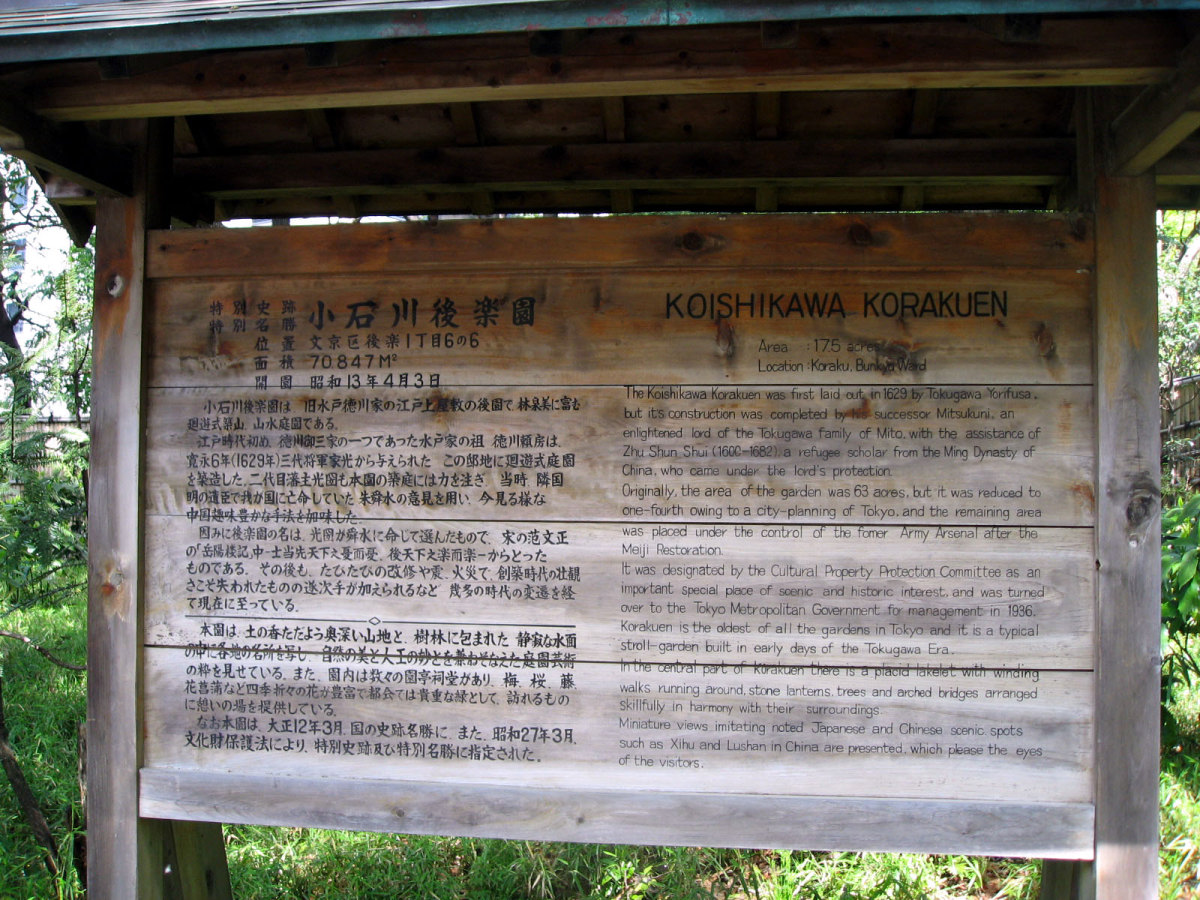 特別史跡
特別名勝
小石川後楽園
位置 文京区後楽1丁目6の6
面積 70.847M²
開園 昭和13年4月3日
小石川後楽園は、旧水戸徳川家の江戸上屋敷の後園で、林泉美に富む
廻遊式築山、山水庭園である。
江戸時代初め、徳川御三家の一つであった水戸家の祖、徳川頼房は、
寛永6年(1629年)三代将軍家光から与えられた この邸地に廻遊式庭園
を築造した。二代目藩主光圀も本園の築庭には力を注ぎ、当時、隣国
明の遺臣で我が国に亡命していた朱舜水の意見を用い、今見る様な
中国趣味豊かな手法を加味した。
因みに後楽園の名は、光圀が舜水に命して選んだもので、宋の范文正
の「岳陽楼記」中-士当先天下之憂而憂、後天下之楽而楽-からとった
ものである。その後も、たびたびの改修や震、火災で、創築時代の壮観
さこそ失われたものの逐次手が加えられるなど、幾多の時代の変遷を経
て現在に至っている。
本園は、土の香ただよう奥深い山地と、樹林に包まれた 静寂な水面
の中に各地の名所を写し、自然の美と人工の妙とを兼ねそなえた庭園芸術
の粋を見せている。また、園内は数々の園亭祠堂があり、梅、桜、藤、
花菖蒲など四季折々の花が豊富で都会では貴重な緑として、訪れるもの
に憩いの場を提供している。
なお本園は、大正12年3月、国の史跡名勝に、また、昭和27年3月、
文化財保護法により、特別史跡及び特別名勝に指定された。
KOISHIKAWA KORAKUEN
Area : 17.5 acres
Location : Koraku, Bunkyo Ward
The Koishikawa Korakuen was first laid out in 1629 by Tokugawa Yorifusa,
but it's construction was completed by his successor Mitsukuni, an
enlightened lord of the Tokugawa family of Mito, with the assistance of
Zhu Shun Shui (1600-1682), a refugee scholar from the Ming Dynasty of
China, who came under the lord's protection.
Originally, the area of the garden was 63 acres, but it was reduced to
one-fourth owing to a city-planning of Tokyo, and the remaining area
was placed under the control of the fomer Army Arsenal after the
Meiji Restoration.
It was designated by the Cultural Property Protection Committee as an
important special place of scenic and historic interest, and was turned
over to the Tokyo Metropolitan Government for management in 1936.
Korakuen is the oldest of all the gardens in Tokyo and it is a typical
stroll-garden built in early days of the Tokugawa Era.
In the central part of Korakuen there is a placid lakelet with winding
walks running around, stone lanterns, trees and arched bridges arranged
skillfully in harmony with their surroundings.
Miniature views imitating noted Japanese and Chinese scenic spots
such as Xihu and Lushan in China are presented, which please the eyes
of the visitors.